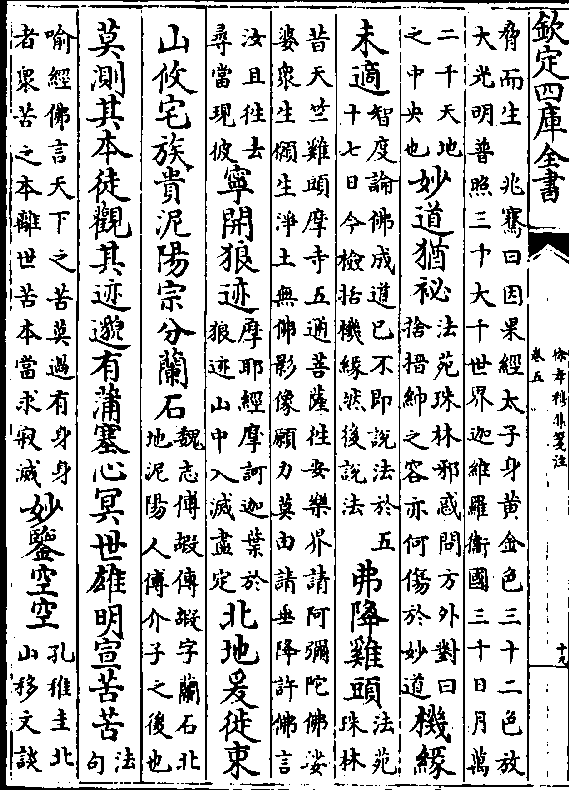 欽定四庫全書
徐孝穆集箋注
卷五
十九
脅而生　兆騫曰因果經太子身黃金色三十二色放
大光明普照三十大千世界迦維羅衛國三十日月萬
二千天地
之中央也
妙道猶祕
法苑珠林邪惑問方外對曰
捨搢紳之容亦何傷於妙道
機緣
未適
智度論佛成道已不即說法於五
十七日今檢括機緣然後說法
弗降雞頭
法苑
珠林
昔天竺雞頭摩寺五通菩薩往安樂界請阿彌陀佛娑
婆衆生願生淨土無佛影像願力莫由請垂降許佛言
汝且往去
尋當現彼
寧開狼迹
摩耶經摩訶迦葉於
狼迹山中入滅盡定
北地爰徙東
山攸宅族貴泥陽宗分蘭石
魏志傅嘏傳嘏字蘭石北
地泥陽人傅介子之後也
莫測其本徒觀其迹邈有蒲塞心冥世雄明宣苦苦
法
句
喻經佛言天下之苦莫過有身身
者衆苦之本離世苦本當求寂滅
妙鑒空空
孔稚圭北
山移文談